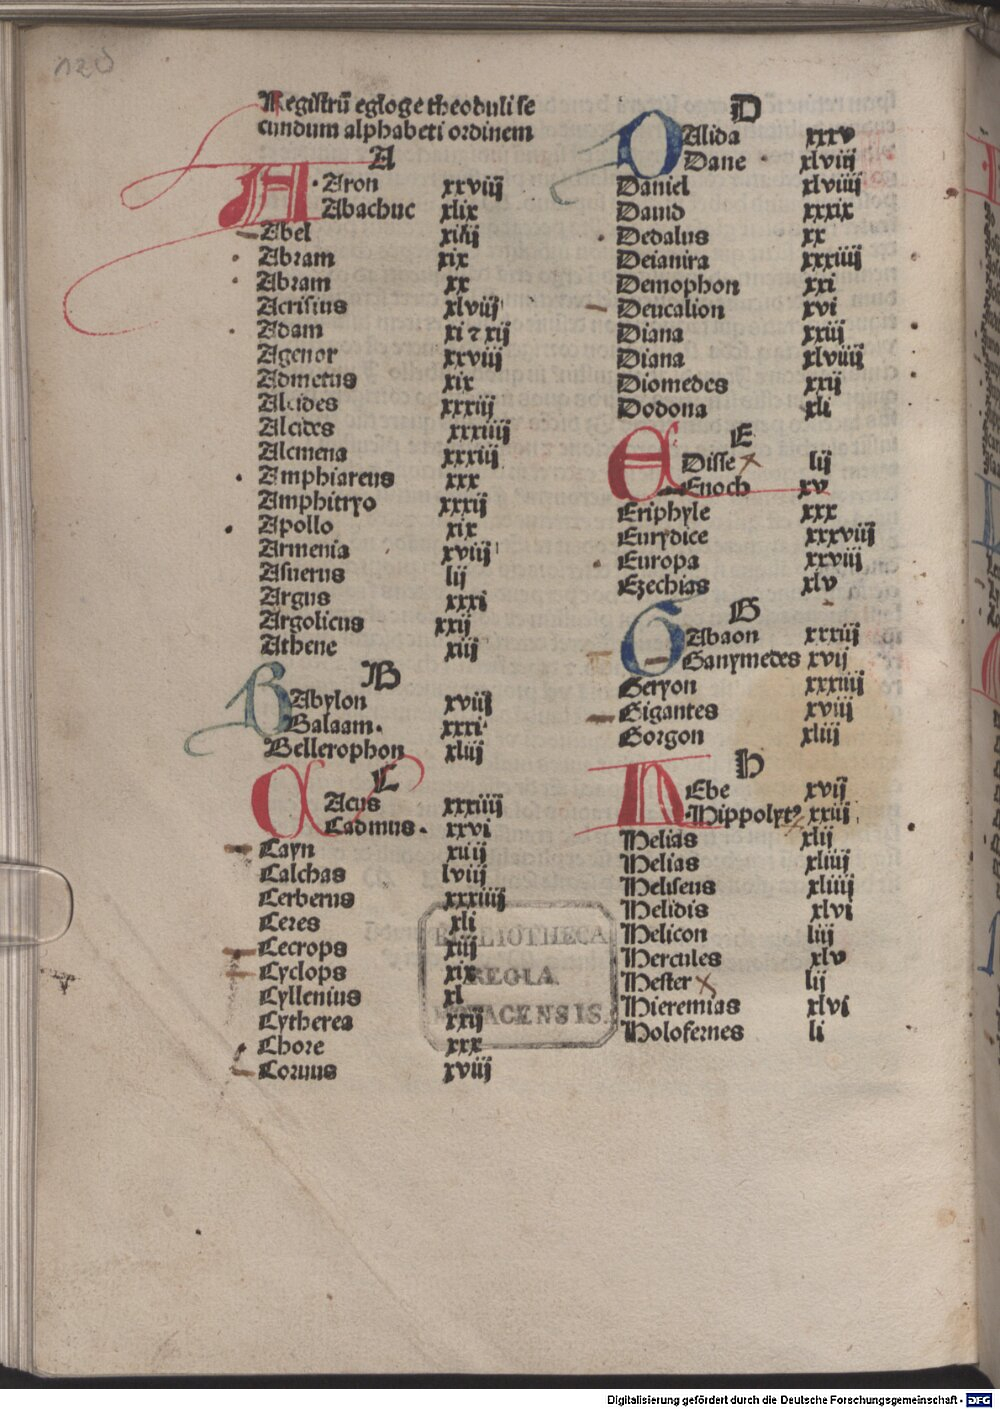 120
Registrū egloge theoduli se
cundum alphabeti ordinem
A
Aron xxviij
Abachuc xlix
Abel xiiij
Abram xix
Abram xx
Acrisius xlviij
Adam xi ⁊ xij
Agenor xxviij
Admetus xix
Alcides xxxiij
Alcides xxxiiij
Alcmena xxxiij
Amphiareus xxx
Amphitryo xxxij
Apollo xix
Armenia xviij
Asuerus lij
Argus xxxi
Argolicus xxij
Athene xiij
B
BAbylon xviij
Balaam. xxxi
Bellerophon xliij
C
CAcus xxxiiij
Cadmus. xxvi
Cayn xiiij
Calchas lviij
Cerberus xxxiiij
Ceres xli
Cecrops xiij
Cyclops xix
Cyllenius xl
Cytherea xxij
Chore xxx
Coruus xviij
D
DAlida xxxv
Dane xlviij
Daniel xlviiij
Dauid xxxix
Dedalus xx
Deianira xxxiiij
Demophon xxi
Deucalion xvi
Diana xxiij
Diana xlviiij
Diomedes xxij
Dodona xli
E
EDisse lij
Enoch xv
Eriphyle xxx
Eurydice xxxviij
Europa xxviij
Ezechias xlv
G
GAbaon xxxiij
Ganymedes xvij
Geryon xxxiiij
Gigantes xviij
Gorgon xliij
H
HEbe xvij
Hippolytꝰ xxiij
Helias xlij
Helias xliiij
Heliseus xliiij
Helidis xlvi
Helicon liij
Hercules xlv
Hester lij
Hieremias xlvi
Holofernes li
BIBLIOTHECA
REGIA
MONACENSIS.
Digitalisierung gefördert durch die Deutsche Forschungsgemeinschaft - DFG